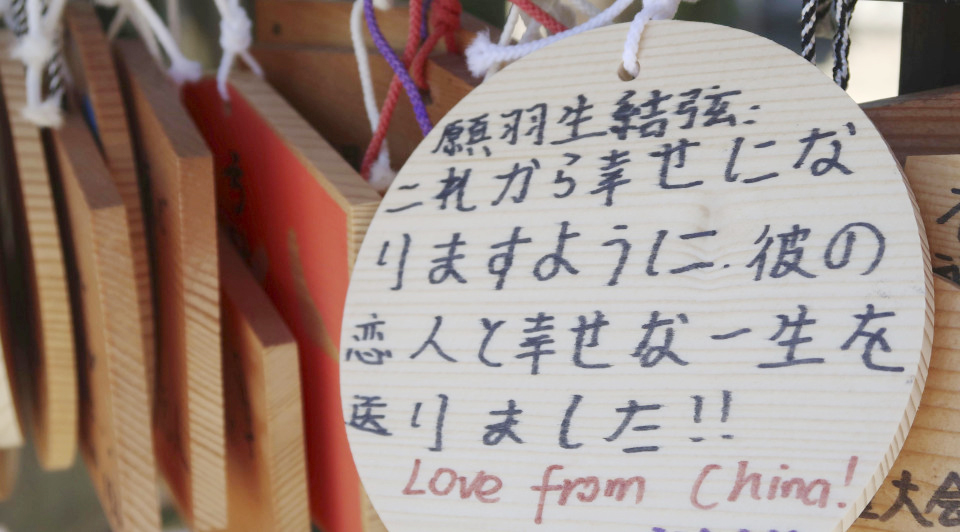 願羽生結弦:
これから幸せにな
りますように.彼の
恋人と幸せな一生を
送りました!!
Love from China!
大会